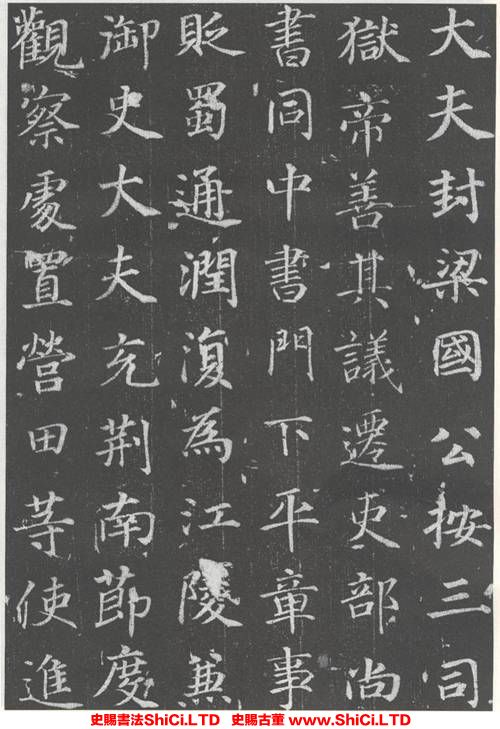 大夫封梁國公按三司
獄帝善其議遷吏部尚
書同中書門下平章事
貶蜀通潤復為江陵兼
御史大夫充荆南節度
觀察處置營田等使進
史賜書法ShiCi.LTD 史賜古董 www.ShiCi.LTD